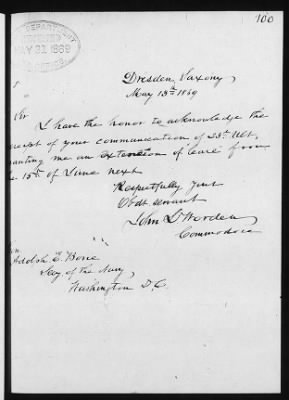 100
DEPARTMENT
RECEIVED
MAY 31 1869
OFFICE
Dresden, Saxony
May 13th 1869
Sir
I have the honor to acknowledge the
receipt of your communication of 23d Ult,
granting me an extension of leave from
the 15th of June next
Respectfully Your
Obdt servant
John L Worden
Commodore
Hon
Adolph E. Borie
Secy of the Navy,
Washington D.C.